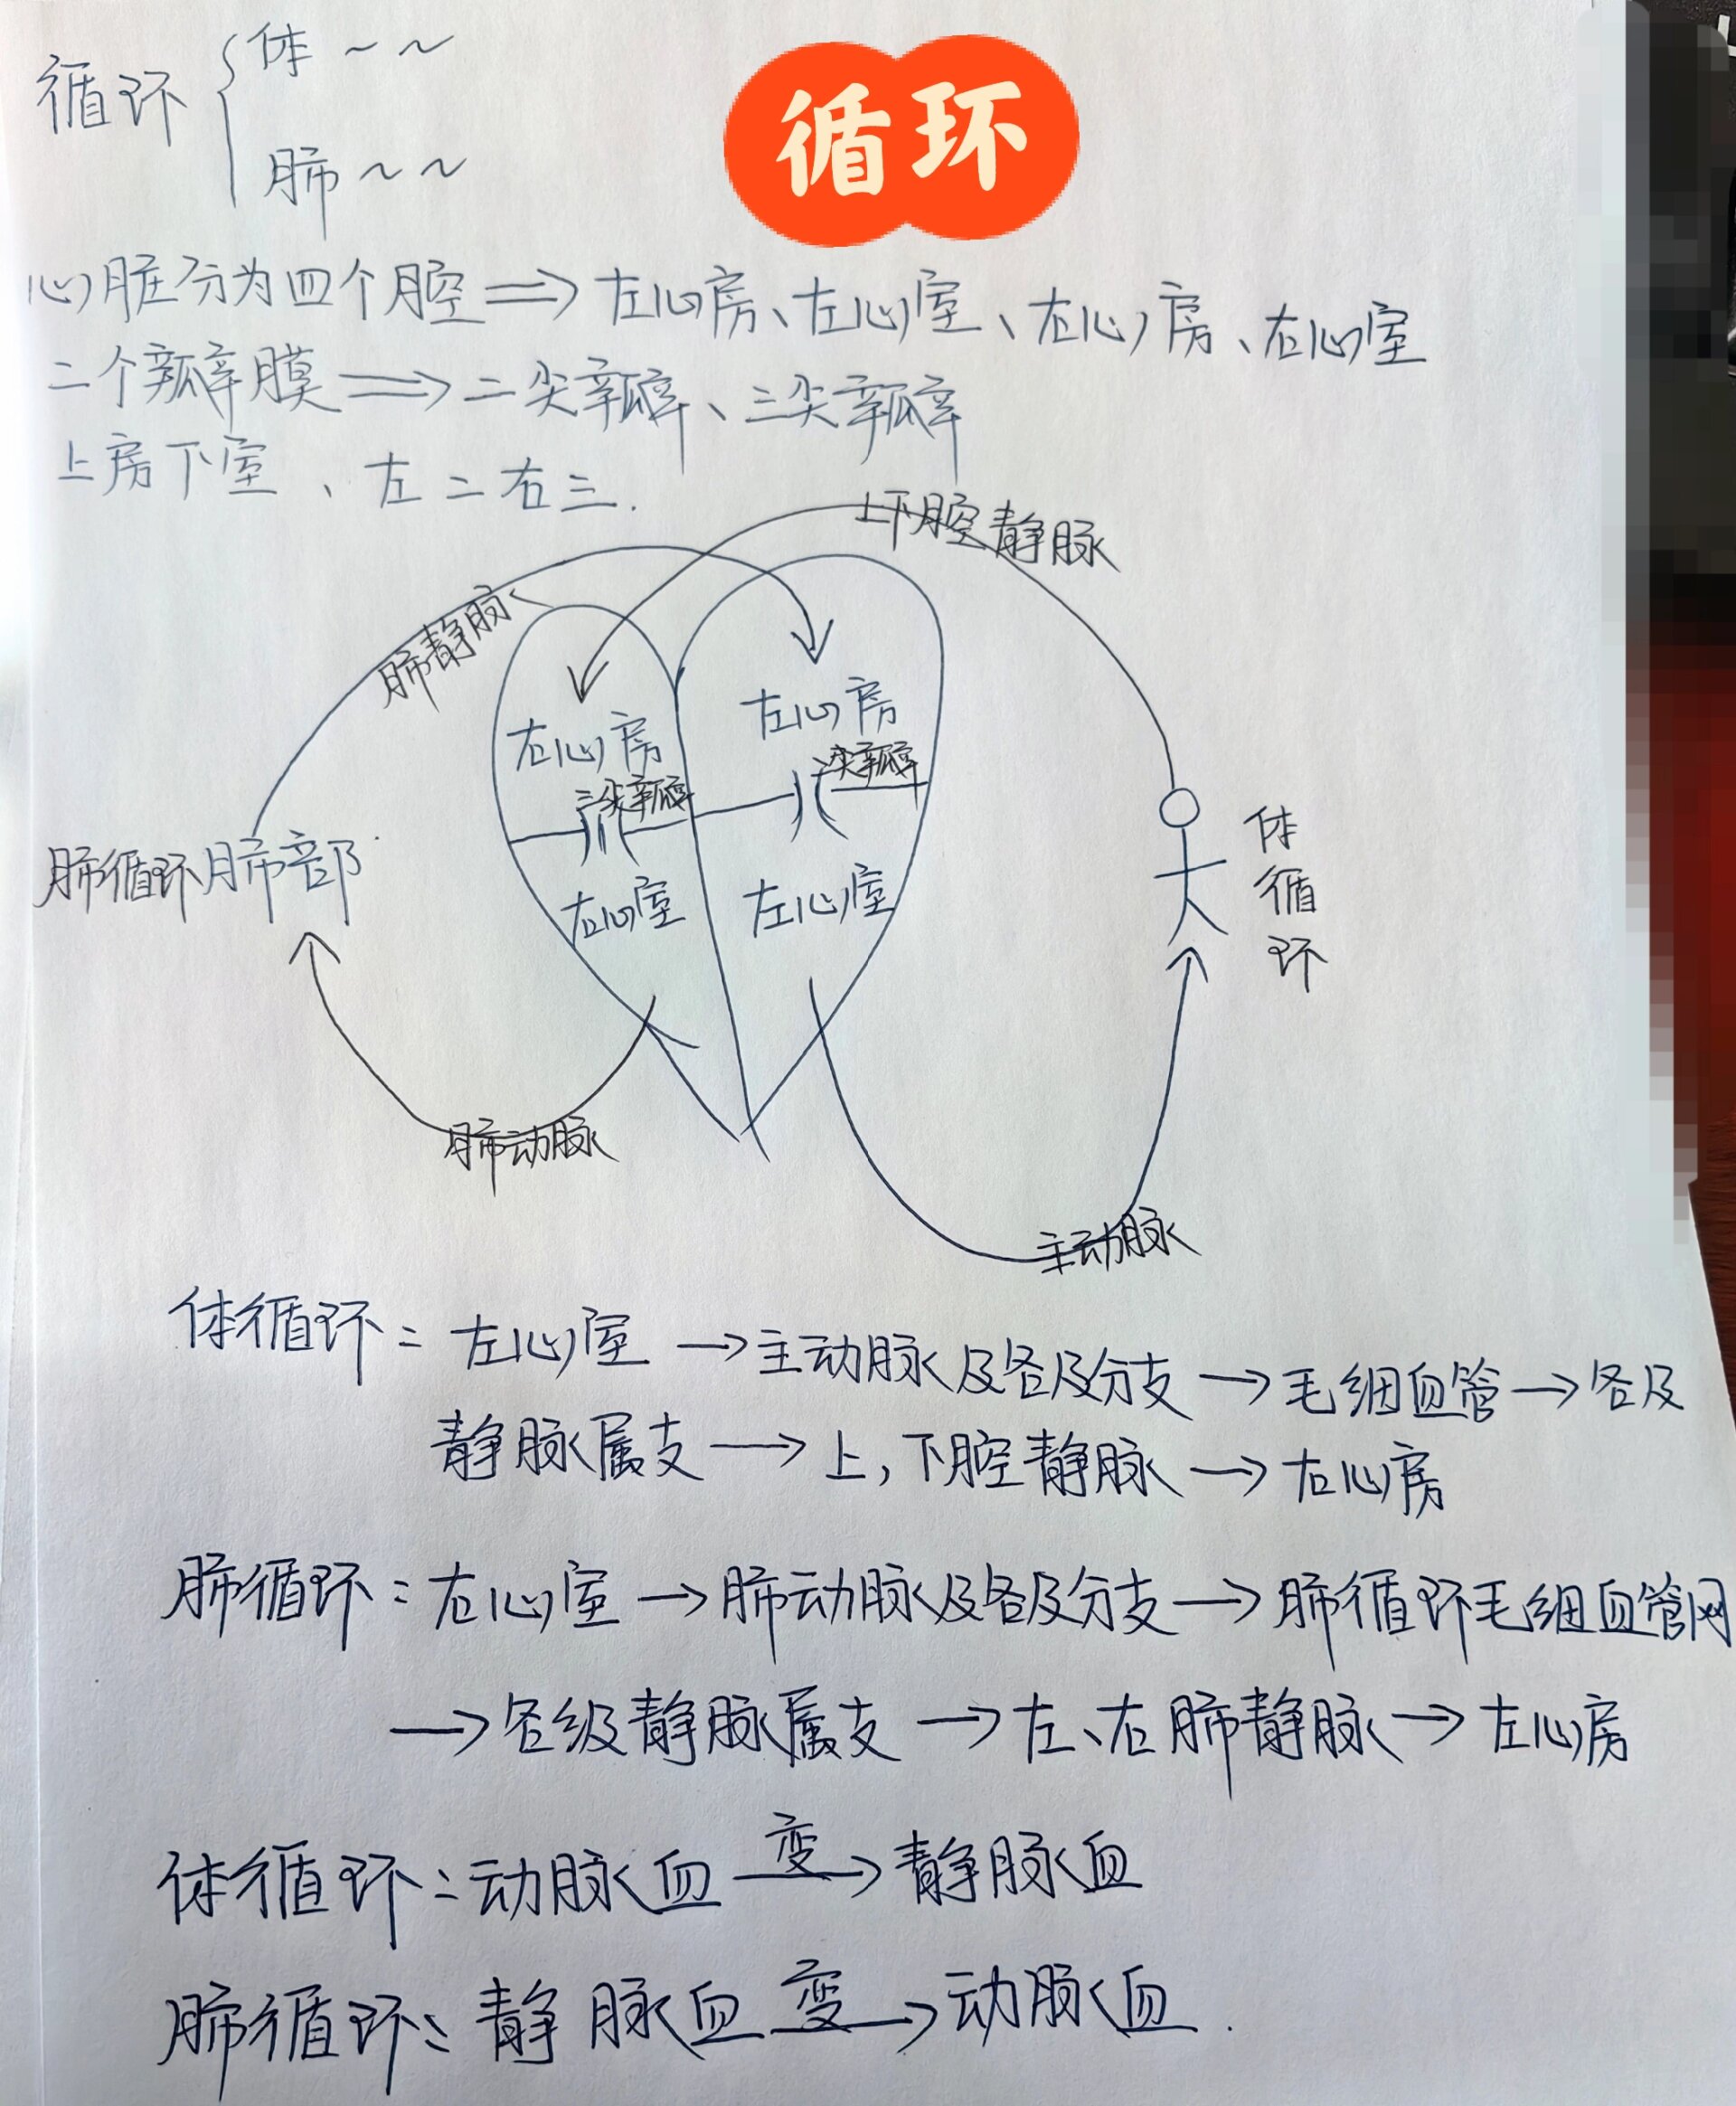 循环
体～～
肺～～
循环
心脏分为四个腔⇒左心房、左心室、右心房、右心室
二个瓣膜⇒二尖瓣、三尖瓣
上房下室、左二右三.
上下腔静脉
肺静脉
右心房
左心房
三尖瓣
二尖瓣
肺循环肺部
右心室
左心室
体循环
肺动脉
主动脉
体循环：左心室→主动脉及各及分支→毛细血管→各及
静脉属支→上,下腔静脉→右心房
肺循环：右心室→肺动脉及各及分支→肺循环毛细血管网
→各级静脉属支→左、右肺静脉→左心房
体循环：动脉血变→静脉血
肺循环：静脉血变→动脉血.